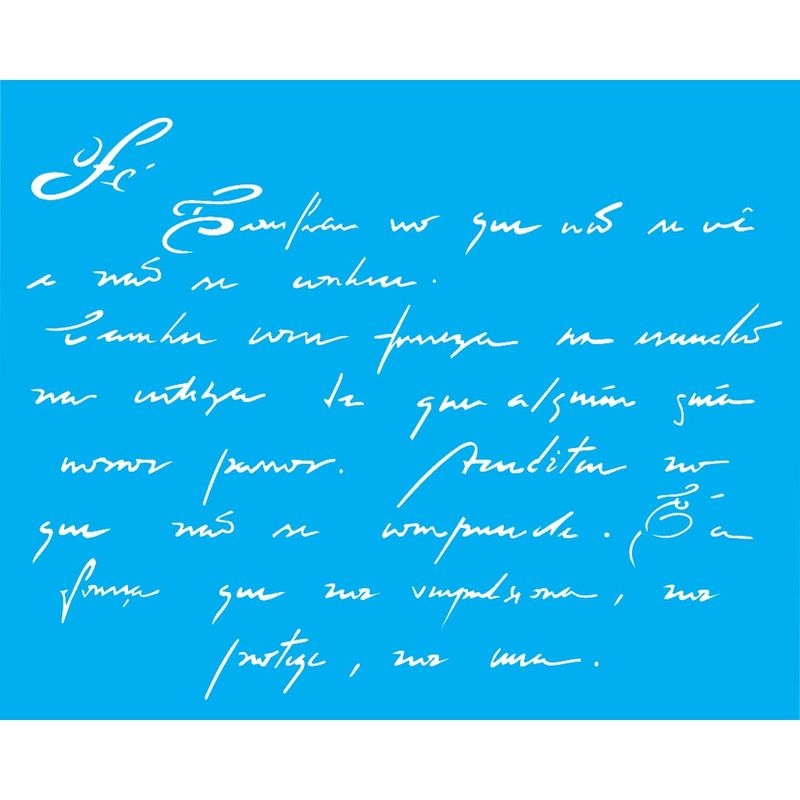 Fé
Confiar no que não se vê
e não se conhece.
Caminhar com firmeza na escuridão
na certeza de que alguém guia
nossos passos. Acreditar no
que não se compreende. É a
força que nos impulsiona, nos
protege, nos une.